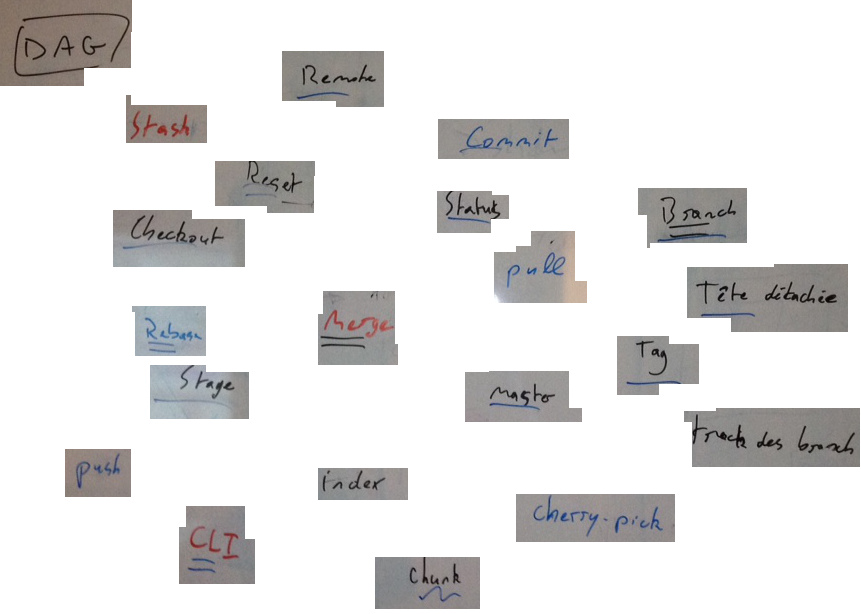 DAG
Remote
Stash
Commit
Reset
Status
Branch
Checkout
pull
Tête détachée
Rebase
Merge
Tag
Stage
master
track des branch
push
index
cherry-pick
CLI
chunk